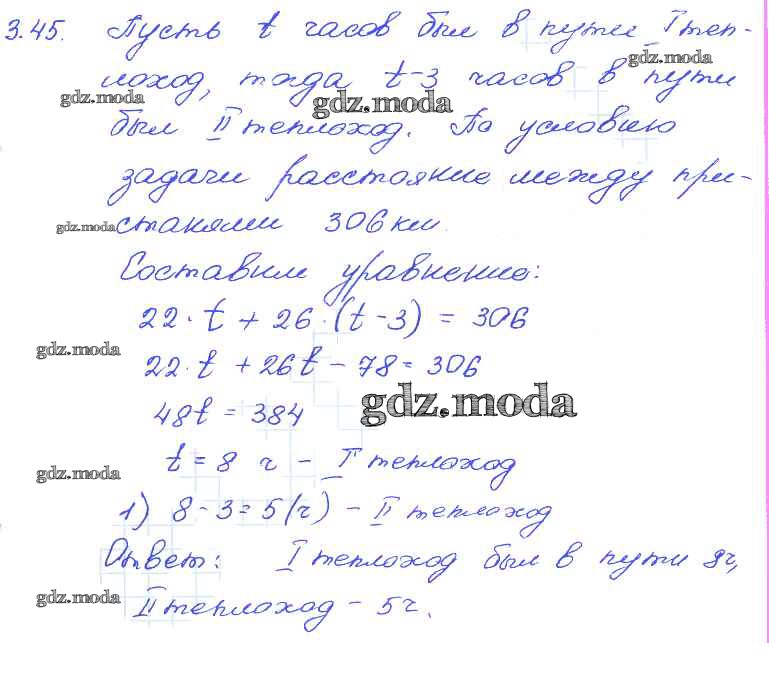 3.45. Пусть t часов был в пути I теп-
gdz.moda
лоход, тогда t-3 часов в пути
gdz.moda
gdz.moda
был II теплоход. По условию
задачи расстояние между при-
gdz.moda
станями 306 км.
Составим уравнение:
22·t + 26·(t-3) = 306
gdz.moda
22·t + 26t - 78 = 306
gdz.moda
48t = 384
t = 8 ч - I теплоход
gdz.moda
1) 8-3=5(ч) - II теплоход
Ответ: I теплоход был в пути 8ч,
gdz.moda
II теплоход - 5ч.